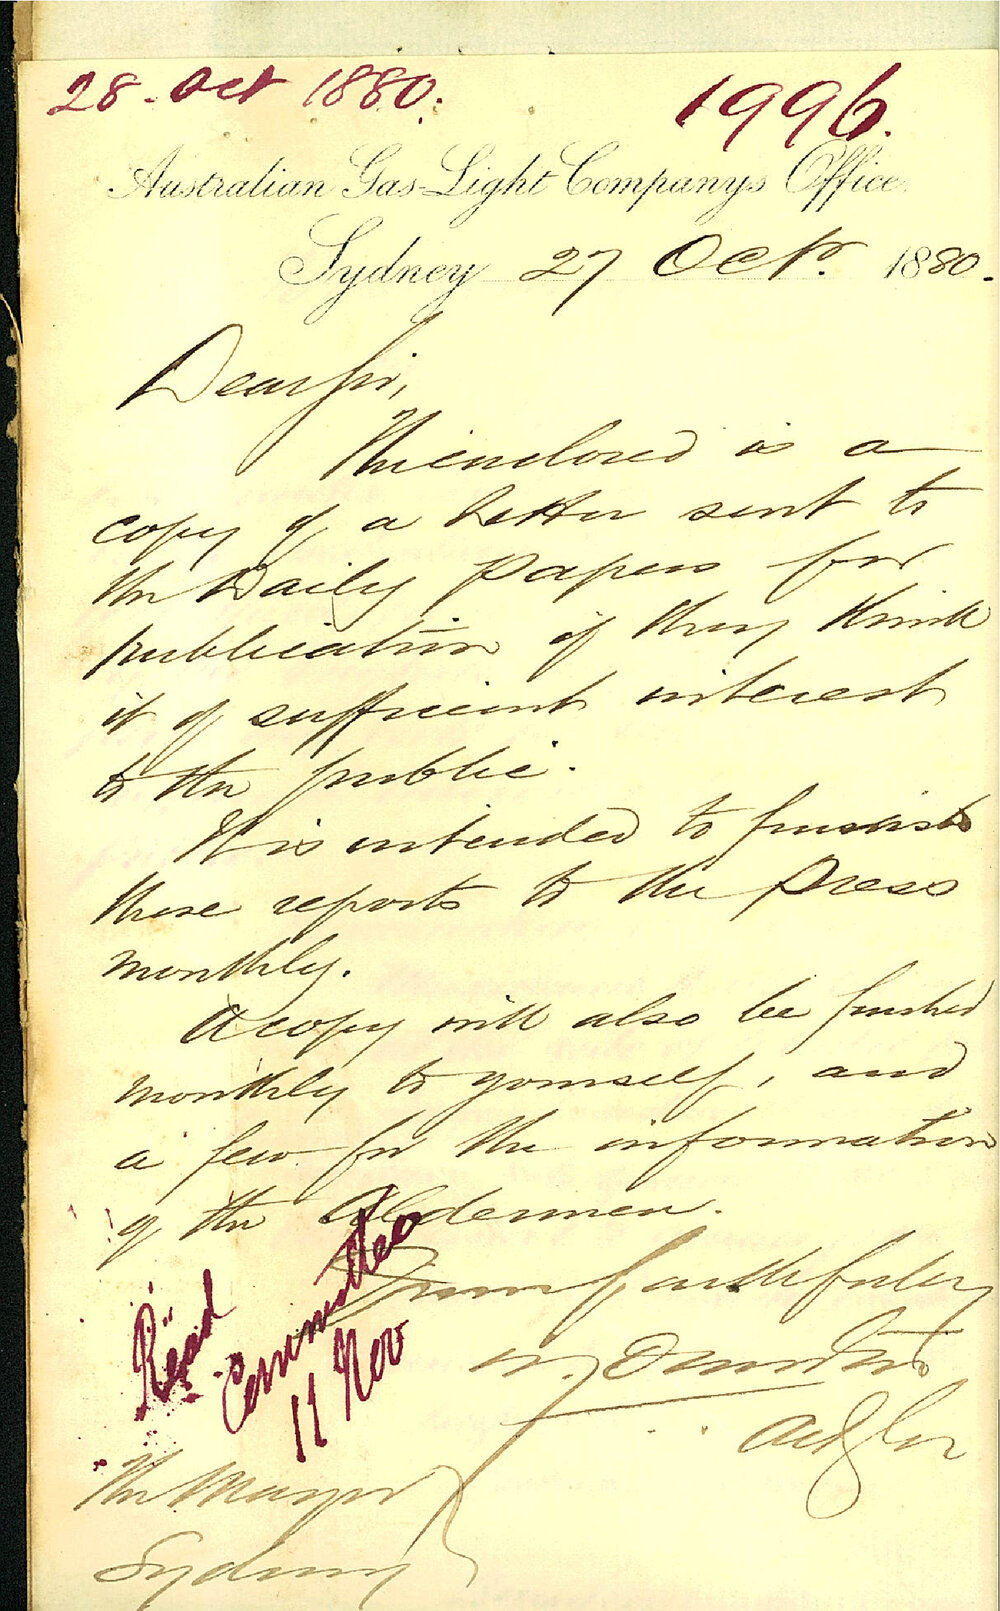 28. Oct 1880.
1996.
Australian Gas-Light Companys Office.
Sydney 27 Octr. 1880.
Dear Sir,
The enclosed is a
copy of a letter sent to
the Daily Papers for
publication if they think
it of sufficient interest
to the public.
It is intended to furnish
these reports to the Press
monthly.
A copy will also be furnished
monthly to yourself, and
a few for the information
of the Aldermen.
Yours faithfully
W.
Read
Committee
11 Nov
The Mayor
Sydney